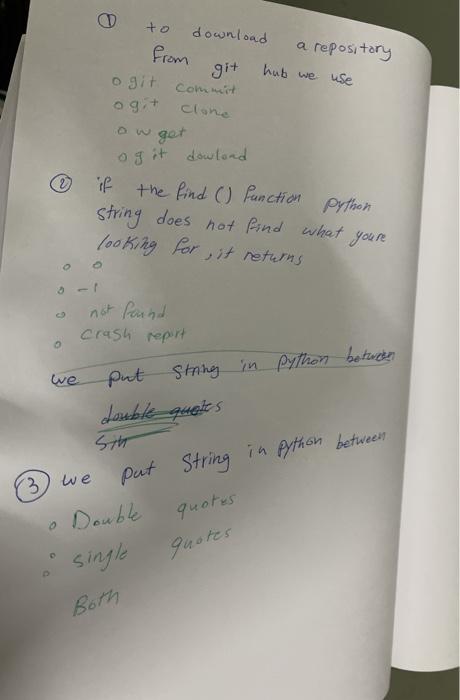 ① to download a repository
from git hub we use
o git commit
o git clone
o wget
o git dowload
② if the find () function python
string does not find what youre
looking for, it returns
o 0
o -1
o not found
o crash report
we put string in python between
double quotes
③ we put String in python between
o Double quotes
o single quotes
o Both